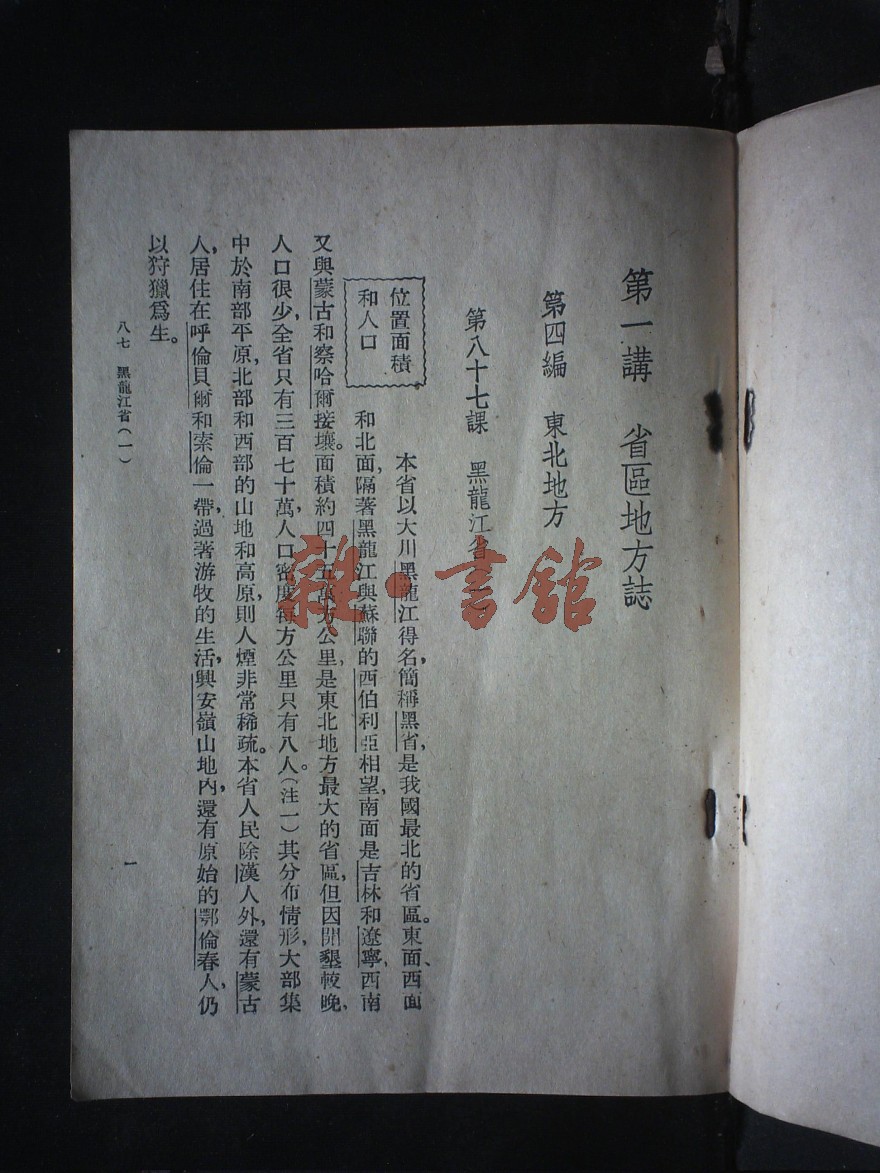 第一講　省區地方誌
第四編　東北地方
第八十七課　黑龍江省
位置面積
和人口
本省以大川黑龍江得名，簡稱黑省，是我國最北的省區。東面、西面
和北面，隔著黑龍江與蘇聯的西伯利亞相望，南面是吉林和遼寧，西南
又與蒙古和察哈爾接壤。面積約四十五萬方公里，是東北地方最大的省區，但因開墾較晚，
人口很少，全省只有三百七十萬，人口密度每方公里只有八人。（注一）其分布情形，大部集
中於南部平原，北部和西部的山地和高原，則人煙非常稀疏。本省人民除漢人外，還有蒙古
人，居住在呼倫貝爾和索倫一帶，過著游牧的生活，興安嶺山地內，還有原始的鄂倫春人，仍
以狩獵爲生。
八七　黑龍江省（一）
一
雜·書館